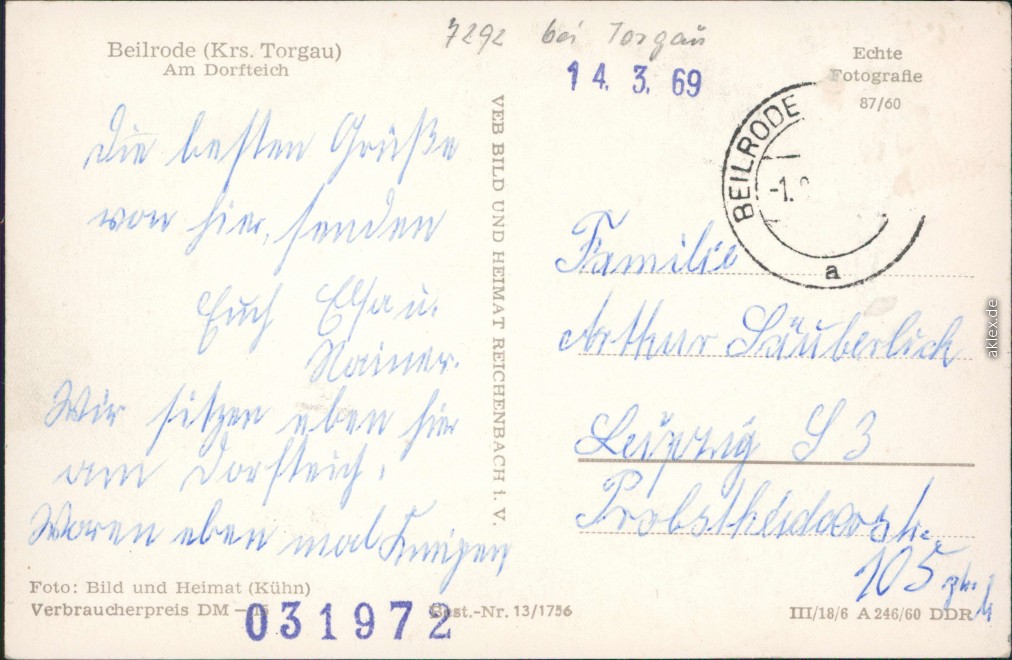 Beilrode (Krs. Torgau)
Am Dorfteich
7292 bei Torgau
14. 3. 69
Echte
Fotografie
87/60
BEILRODE
-1.
a
Die besten Grüße
von hier, senden
Euch Elsa u.
Rainer.
Wir sitzen eben hier
am Dorfteich.
Waren eben mal Kneipen
VEB BILD UND HEIMAT REICHENBACH i. V.
Familie
Arthur Säuberlich
Leipzig S 3
Probstheidaerstr.
105
Foto: Bild und Heimat (Kühn)
Verbraucherpreis DM
031972
Best.-Nr. 13/1756
III/18/6 A 246/60 DDR
aklex.de